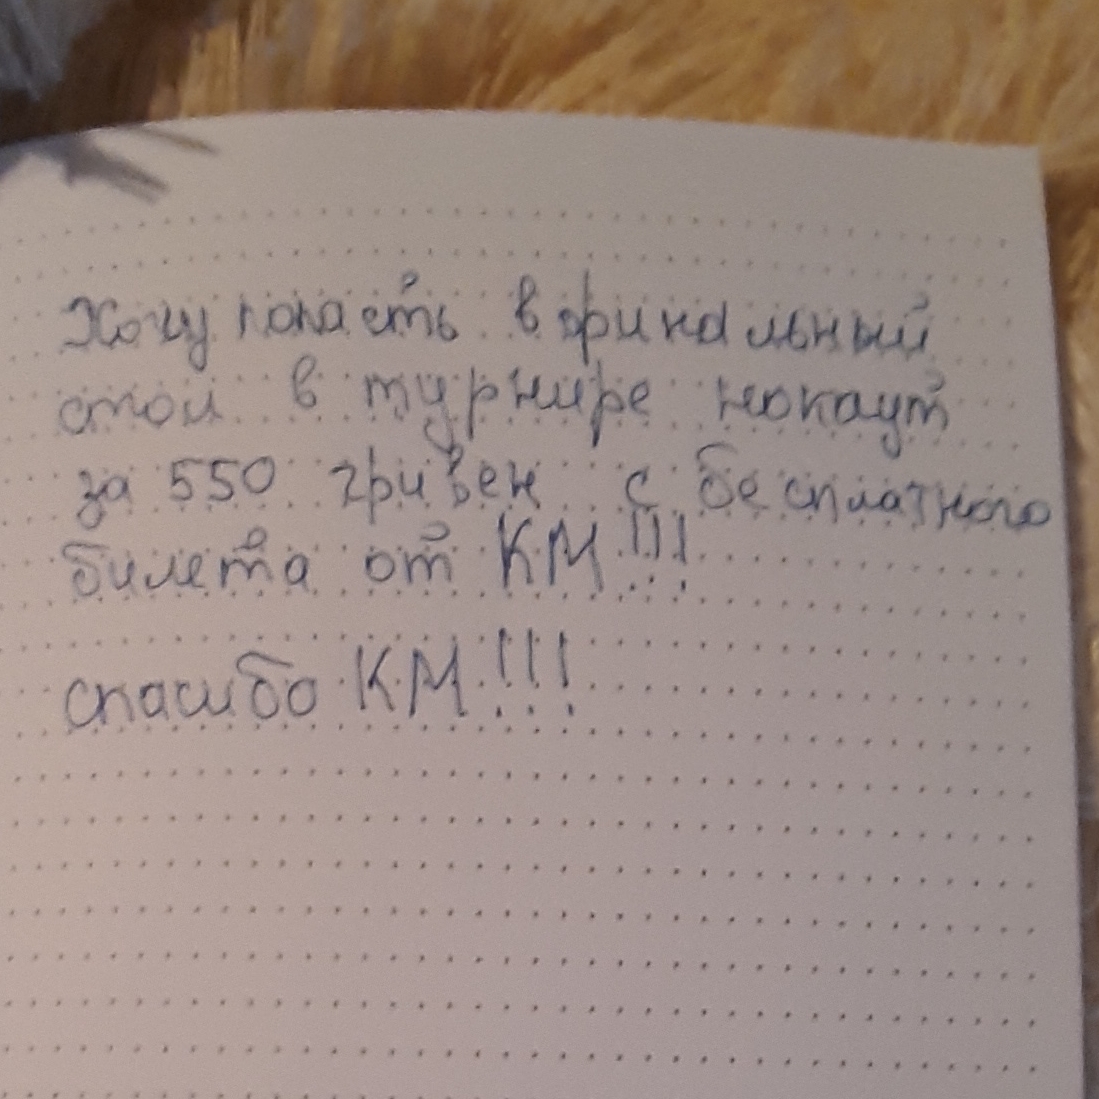 Хочу попасть в финальный
стол в турнире нокаут
за 550 гривен с бесплатного
билета от КМ!!!
спасибо КМ!!!